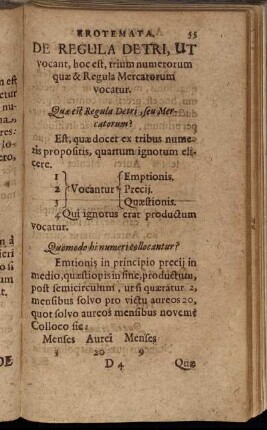 EROTEMATA. 55
DE REGULA DETRI, UT
vocant, hoc est, trium numerorum
quæ & Regula Mercatorum
vocatur.
Quæ est Regula Detri, seu Mer-
catorum?
Est, quæ docet ex tribus nume-
ris propositis, quartum ignotum eli-
cere.
1 Emptionis.
2 Vocantur Precij.
3 Quæstionis.
4 Qui ignotus erat productum
vocatur.
Quomodo hi numeri collocantur?
Emtionis in principio precij in
medio, quæstiopis in fine, productum,
post semicirculum, ut si quæratur 2,
mensibus solvo pro victu aureos 20,
quot solvo aureos mensibus novem?
Colloco sic:
Menses Aurei Menses
20 9
D 4 Quæ